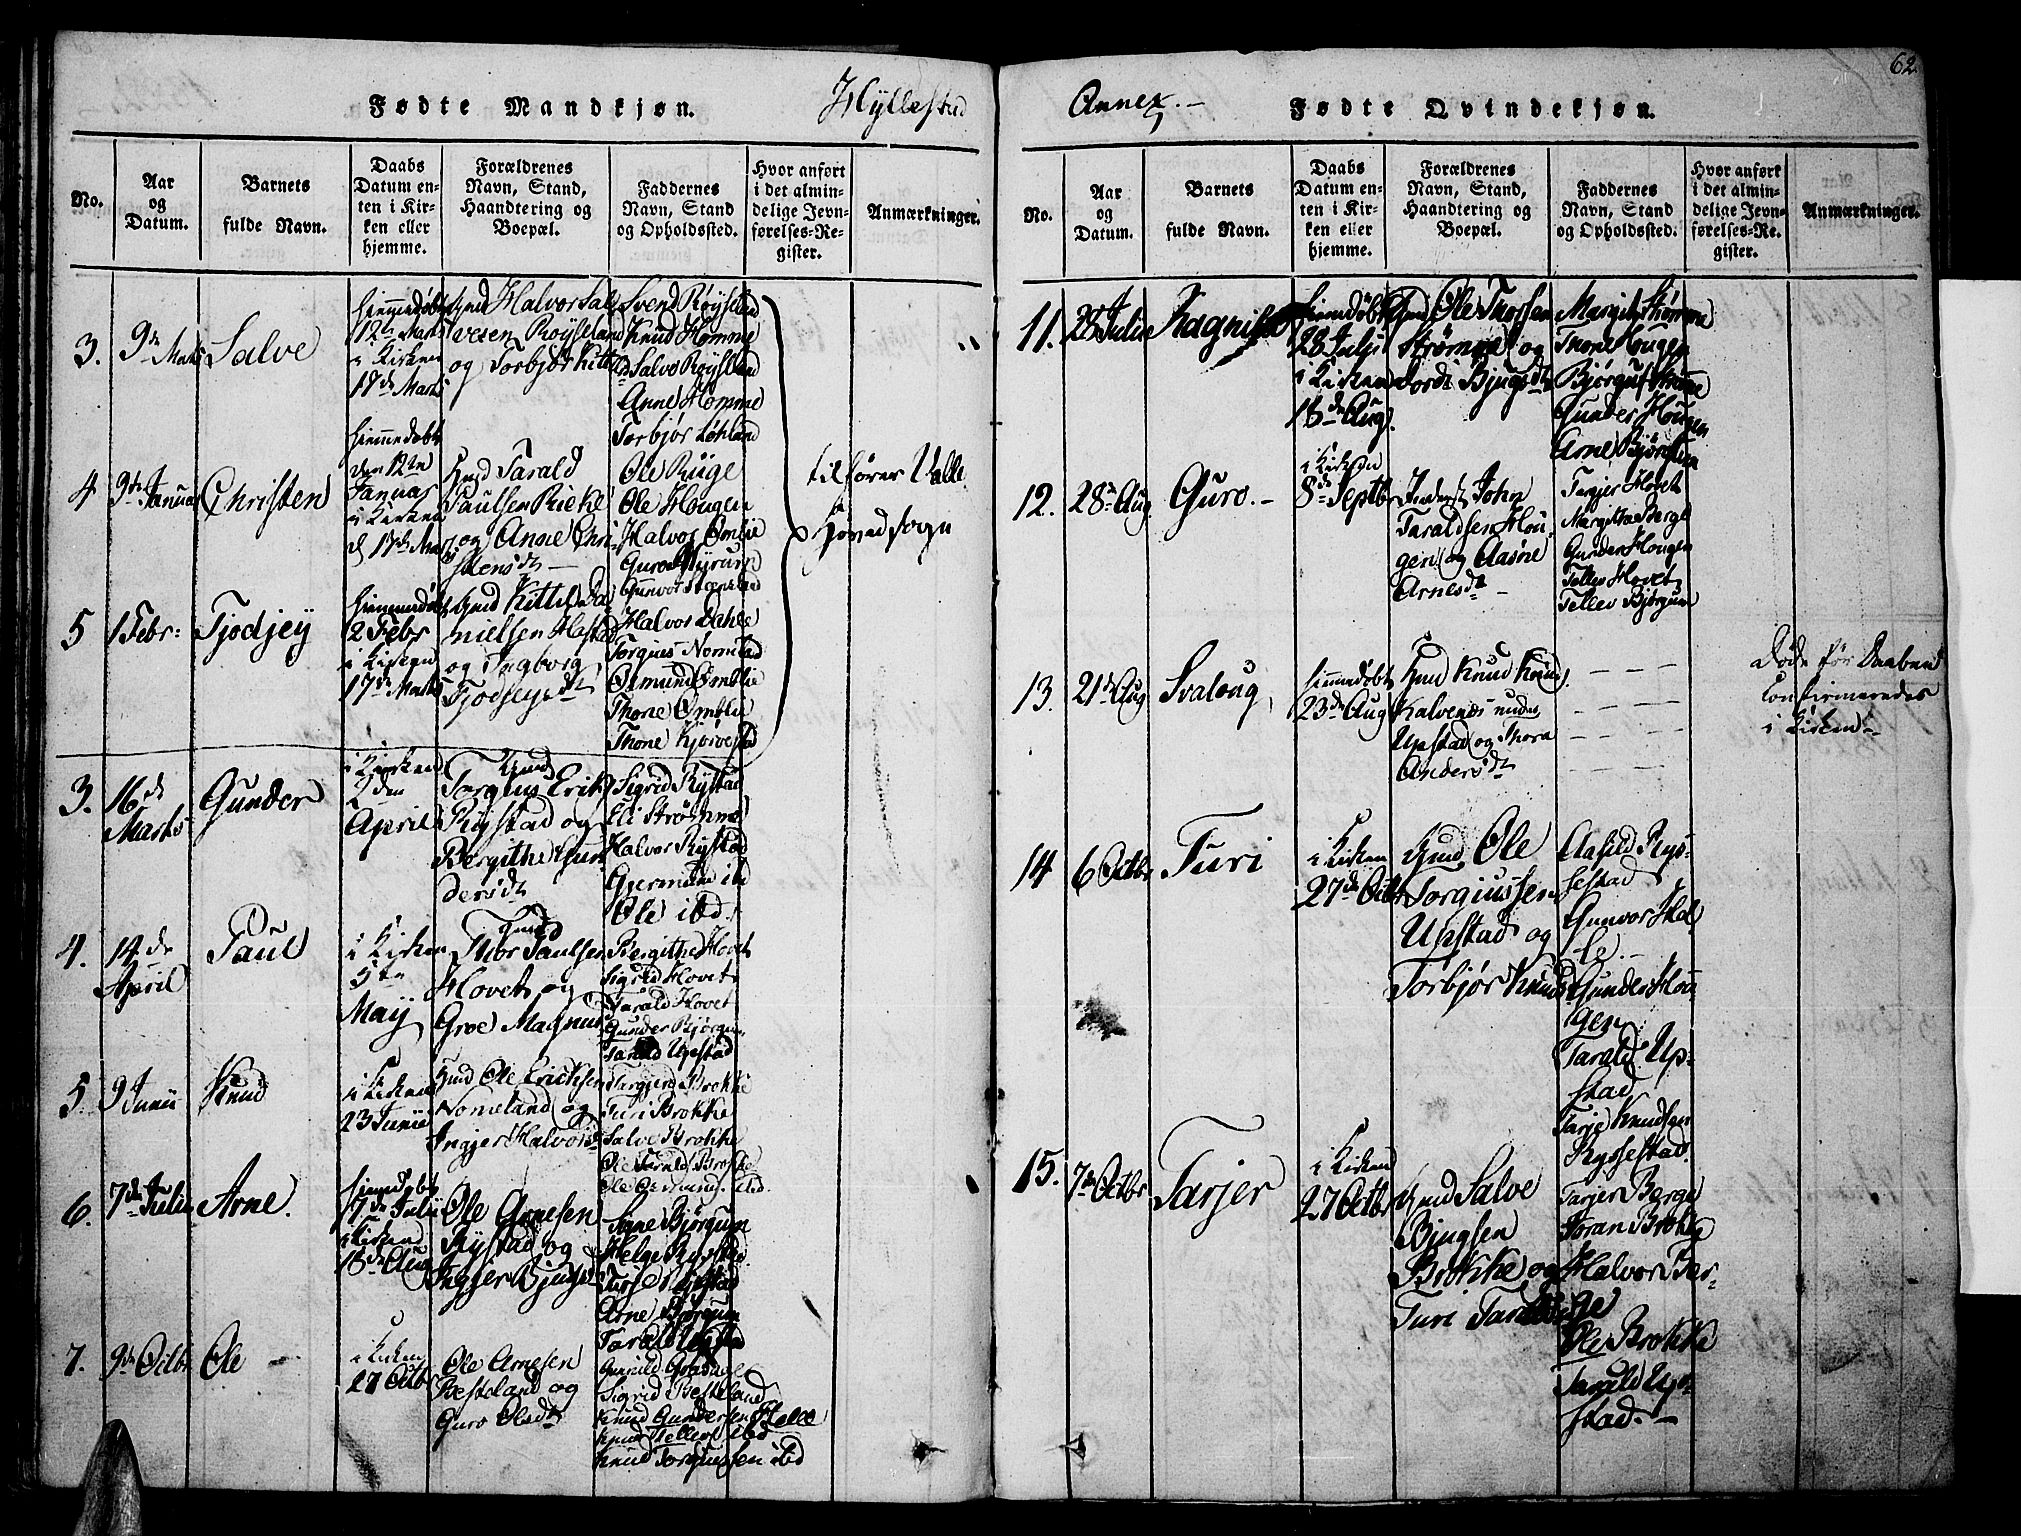 62
Fødte Mandkjøn.
Hyllestad
No.
Aar og Datum.
Barnets fulde Navn.
Daabs Datum enten i Kirken eller hjemme.
Forældrenes Navn, Stand, Haandtering og Boepæl.
Faddernes Navn, Stand og Opholdssted.
Hvor anført i det almindelige Jevnførelses-Register.
Anmærkninger.
3.
9de Marts
Salve
hiemmedøbt
12te Marts
i Kirken
17de Marts
Gmd Halvor Sal
vesen Røyseland
og Torbjør Kittilsd
Svend Røysland
Knud Homme
Salve Røysland
Anne Homme
Torbjør Løhland
4
9de Januar
Christen
hiemmedøbt
den 12te
Januar
i Kirken
d 17de Marts
Gmd Tarald
Paulsen Rieke
og Anne Chri
stensdt
Ole Ruge
Ole Hougen
Halvor Omlie
Guro Myrum
Gunvor
tilhører Valle
Hovedsogn
5
1 Febr:
Tjodjey
hiemmedøbt
2 Febr
i Kirken
17de Marts
Gmd Kittil Da
nielsen Hastad
og Ingborg
Tjodseysdt
Halvor Dahle
Torgius Nomeland
Osmund Omlie
Thone Omlie
Thone Kjørvestad
3.
16de
Marts
Gunder
i Kirken
2den
April
Gmd
Torgius Erik
Rystad og
Bergithe Gun
dersdt
Sigrid Rystad
Eli Strømme
Halvor Rystad
Gjermund ibd
Ole ibd.
4.
14de
April
Paul
i Kirken
5te
May
Gmd
Thor Paulsen
Hovet og
Groe Magnus
Bergithe Hovet
Sigrid Hovet
Tarald Hovet
Gunder Bjørgum
Tarald Upstad
5.
9 Junii
Knud
i Kirken
23 Junii
Gmd Ole Ericksen
Nomeland og
Ingjer Halvorsd
Targjerd Brokke
Turi Brokke
Salve Brokke
Ole Tarald Brokke
Ole ibd.
6.
7de Julii
Arne.
hiemmedøbt
17de Julii
i Kirken
18de Aug
Ole Arnesen
Rystad og
Ingjer Bjugsd
Anne Bjørgum
Helge Rystad
Tarje Rystad
Arne Bjørgum
Tarald Upstad
7.
9de Octbr
Ole
i Kirken
27 Octbr
Ole Arnesen
Besteland og
Guro Olsdt
Gunild
Sigrid Besteland
Knud Gundersen Helle
Knud Tellevs ibd
Knud Torgiussen ibd
Annex.
Fødte Qvindekjøn.
No.
Aar og Datum.
Barnets fulde Navn.
Daabs Datum enten i Kirken eller hjemme.
Forældrenes Navn, Stand, Haandtering og Boepæl.
Faddernes Navn, Stand og Opholdssted.
Hvor anført i det almindelige Jevnførelses-Register.
Anmærkninger.
11.
28 Julii
Ragnild
hiemmedöbt
28 Julji
i Kirken
18de Aug.
Gmd Ole Thorsen
Strømme og
Jordi Bjugsdt
Margit Strømme
Thone Hougen
Bjørguf Strømme
Gunder Hougen
Arne Bjørgum
12.
28de Aug
Guro.
i Kirken
8de Septbr
Inderst John
Taraldsen Hou
gen og Aasne
Arnesdt
Targjer Hovet
Margitha Berge
Gunder Hougen
Tellev Hovet
Tellev Bjørgum
13.
21de Aug
Svaloug
hiemmedöbt
23de Aug
Gmd Knud Knuds
Kalvenæs nudes
Upstad og Thora
Andersdt
Döde för Daaben
Confirmeredes
i Kirken
14
6 Octbr
Turi
i Kirken
27de Octbr
Gmd. Ole
Torgiussen
Upstad og
Torbjør Knuds
Aasild Rys-
sestad
Gunvor Hal
le.
Gunder Hou
gen
Tarald Up-
stad
Tarje Knudsen
Ryssestad.
15.
7de Octbr
Tarjer
i Kirken
27 Octbr
Gmd Salve
Bjugsen
Brokke og
Turi Taralds
Tarjer Berge
Joran Brokke
Halvor Ber-
ge
Ole Brokke
Tarald Up-
stad.